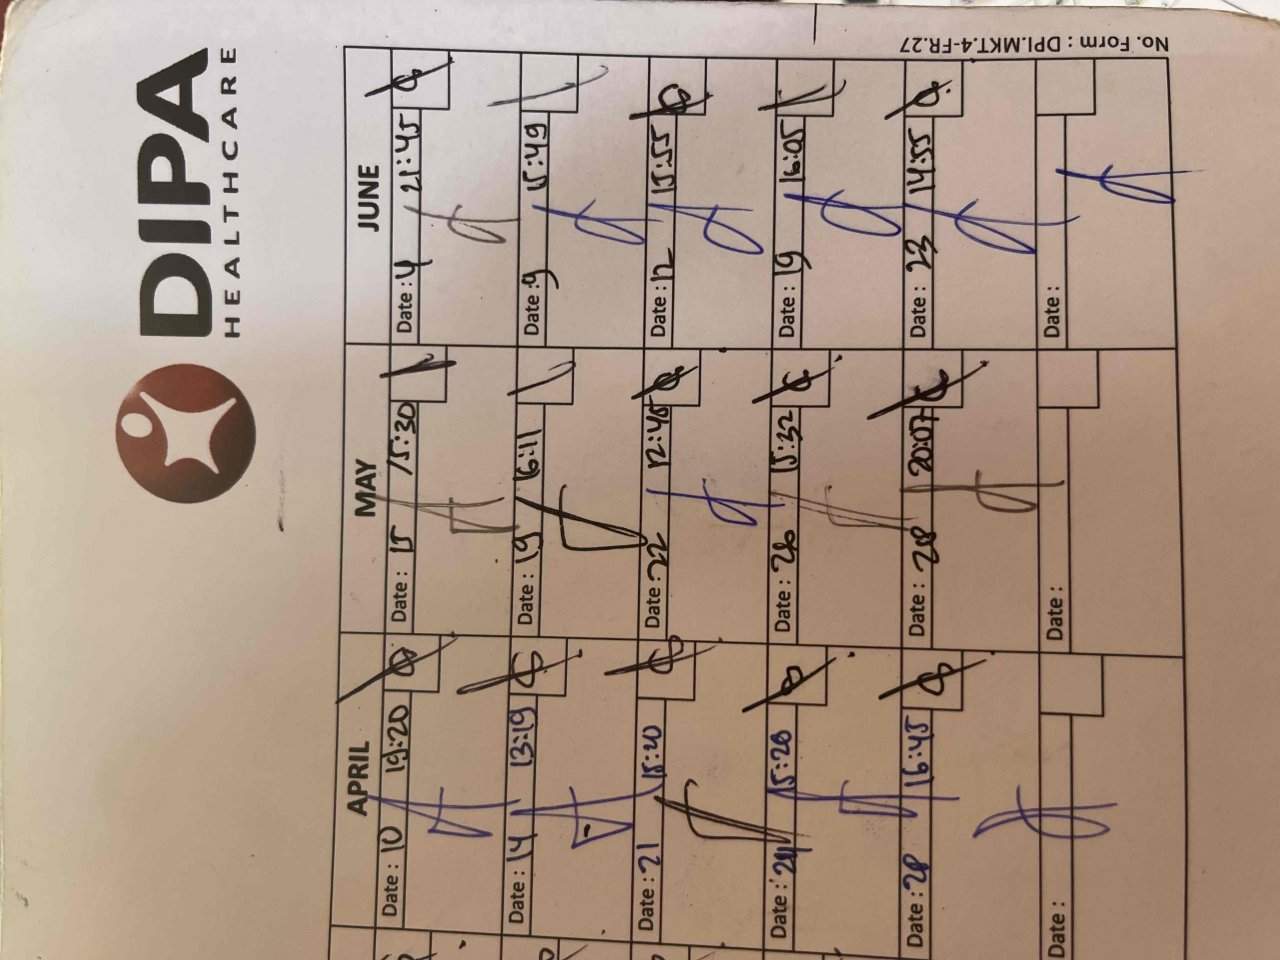 DIPA
HEALTHCARE
No. Form : DPI.MKT.4-FR.27
APRIL MAY JUNE
Date : 10 19:20 Date : 15 15:30 Date : 4 21:45
Date : 14 13:19 Date : 19 16:11 Date : 9 15:49
Date : 21 15:20 Date : 22 12:45 Date : 12 15:55
Date : 24 15:28 Date : 26 15:32 Date : 19 16:05
Date : 28 16:45 Date : 28 20:07 Date : 23 14:55
Date : Date : Date :